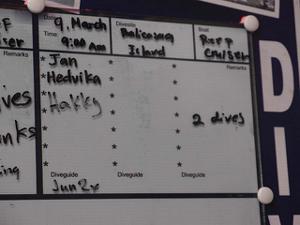 Date: 9. March
Time: 9:00 Am
Divesite
Balicasag
Island
Boat
Reef
Cruiser
Remarks
Remarks
* Jan
* Hedvika
* Hakky
2 dives
ives
nks
ing
Diveguide
Diveguide
Diveguide
Jun2x
DI